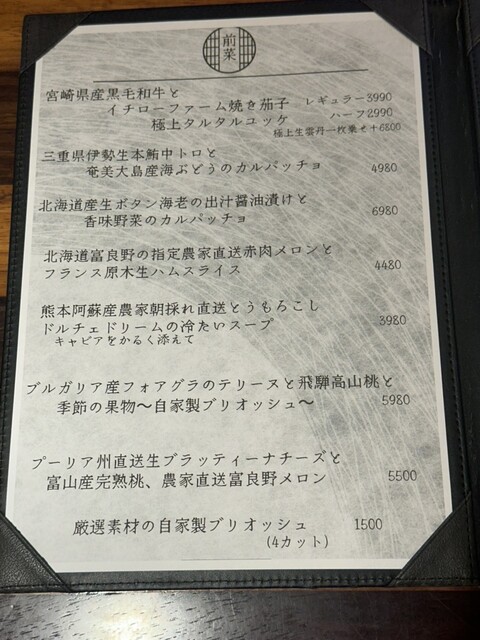 前菜
宮崎県産黒毛和牛と
イチローファーム焼き茄子 レギュラー3990
極上タルタルユッケ ハーフ2990
極上生雲丹一枚乗せ+6800
三重県伊勢生本鮪中トロと
奄美大島産海ぶどうのカルパッチョ 4980
北海道産生ボタン海老の出汁醤油漬けと
香味野菜のカルパッチョ 6980
北海道富良野の指定農家直送赤肉メロンと
フランス原木生ハムスライス 4480
熊本阿蘇産農家朝採れ直送とうもろこし
ドルチェドリームの冷たいスープ 3980
キャビアをかるく添えて
ブルガリア産フォアグラのテリーヌと飛騨高山桃と
季節の果物〜自家製ブリオッシュ〜 5980
プーリア州直送生ブラッティーナチーズと
富山産完熟桃、農家直送富良野メロン 5500
厳選素材の自家製ブリオッシュ 1500
(4カット)